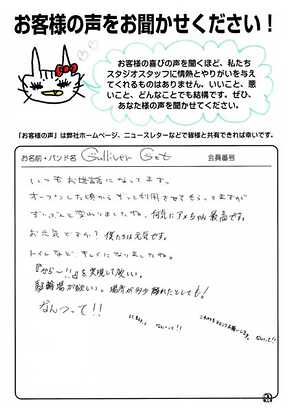 お客様の声をお聞かせください！
お客様の喜びの声を聞くほど、私たち
スタジオスタッフに情熱とやりがいを与え
てくれるものはありません。いいこと、悪
いこと、どんなことでも結構です。ぜひ、
あなた様の声を聞かせてください。
「お客様の声」は弊社ホームページ、ニュースレターなどで皆様と共有できれば幸いです。
お名前・バンド名 Gulliver Get 会員番号
いつもお世話になってます。
オープンした頃からずっと利用させてもらってますが
ずいぶんと変わりましたね。何気にアメちゃん最高です。
お元気ですか？僕たちは元気です。
トイレなど、キレイになりましたね。
を実現して欲しい。
駐輪場が欲しい。場所が多少離れたとしても！
なんつって！！
なんつって！！